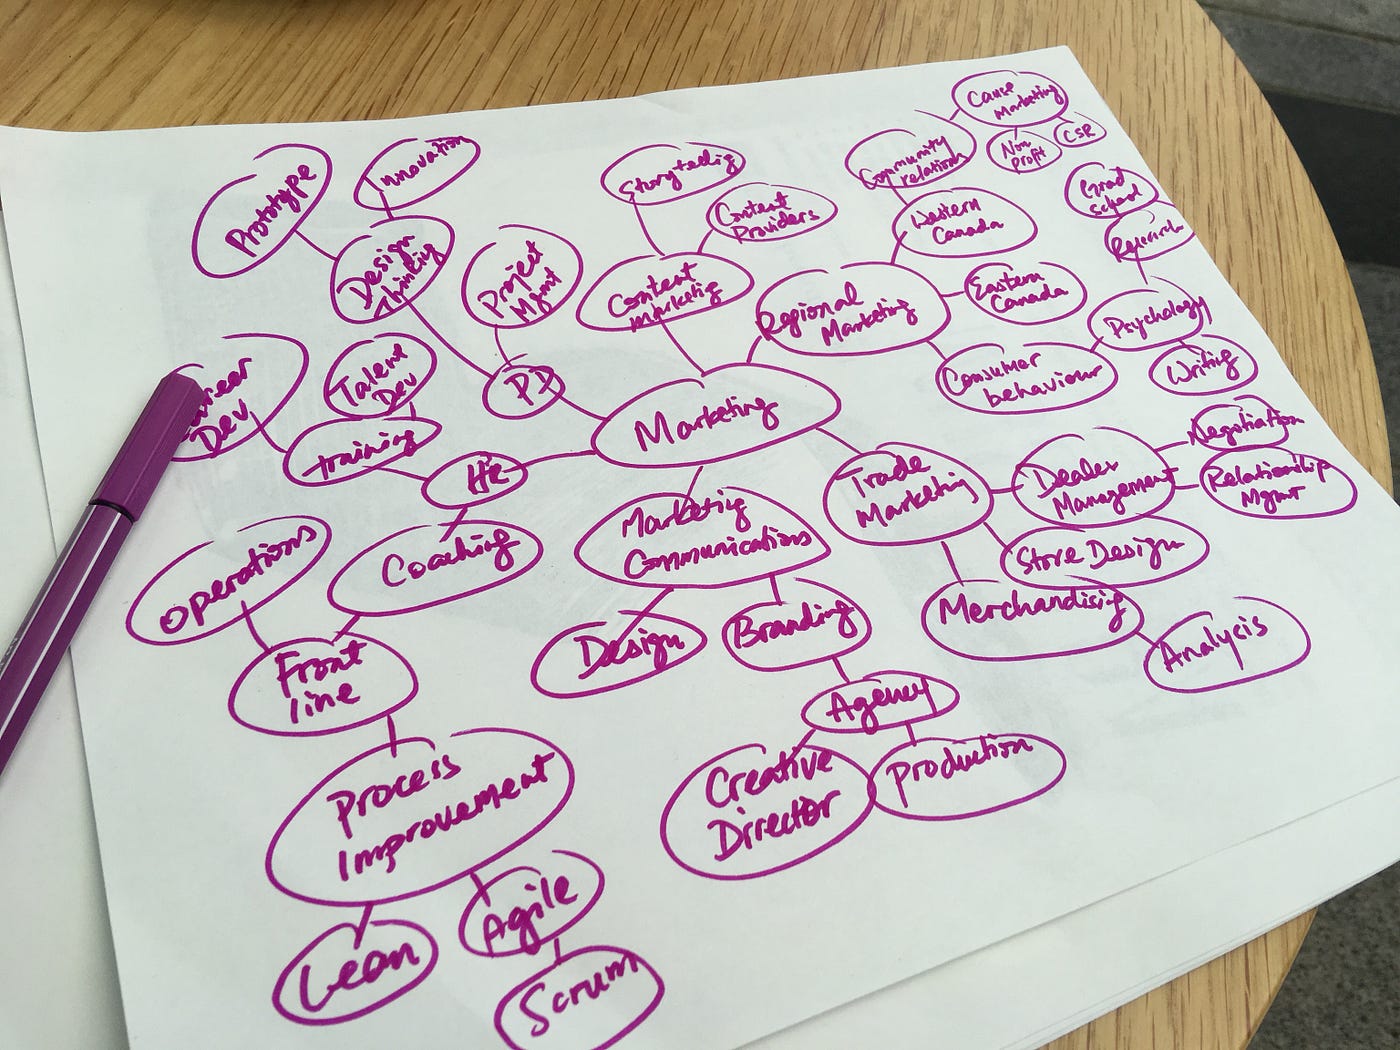 Cause
Marketing
Non
profit
CSR
Community
relations
Grad
school
Research
Innovation
Prototype
Storytellig
Content
Providers
Western
Canada
Design
Thinking
Project
Mgmt
Content
marketig
Regional
Marketing
Eastern
Canada
Psychology
Writing
Consumer
behaviour
Career
Dev
Talent
Dev
PD
Marketing
training
HR
Trade
Marketing
Dealer
Management
Negotiation
Relationship
Mgmt
Operations
Coaching
Marketing
Communications
Store Design
Merchandisig
Analysis
Front
line
Design
Branding
Agency
Process
Improvement
Creative
Dirrector
Production
Lean
Agile
Scrum